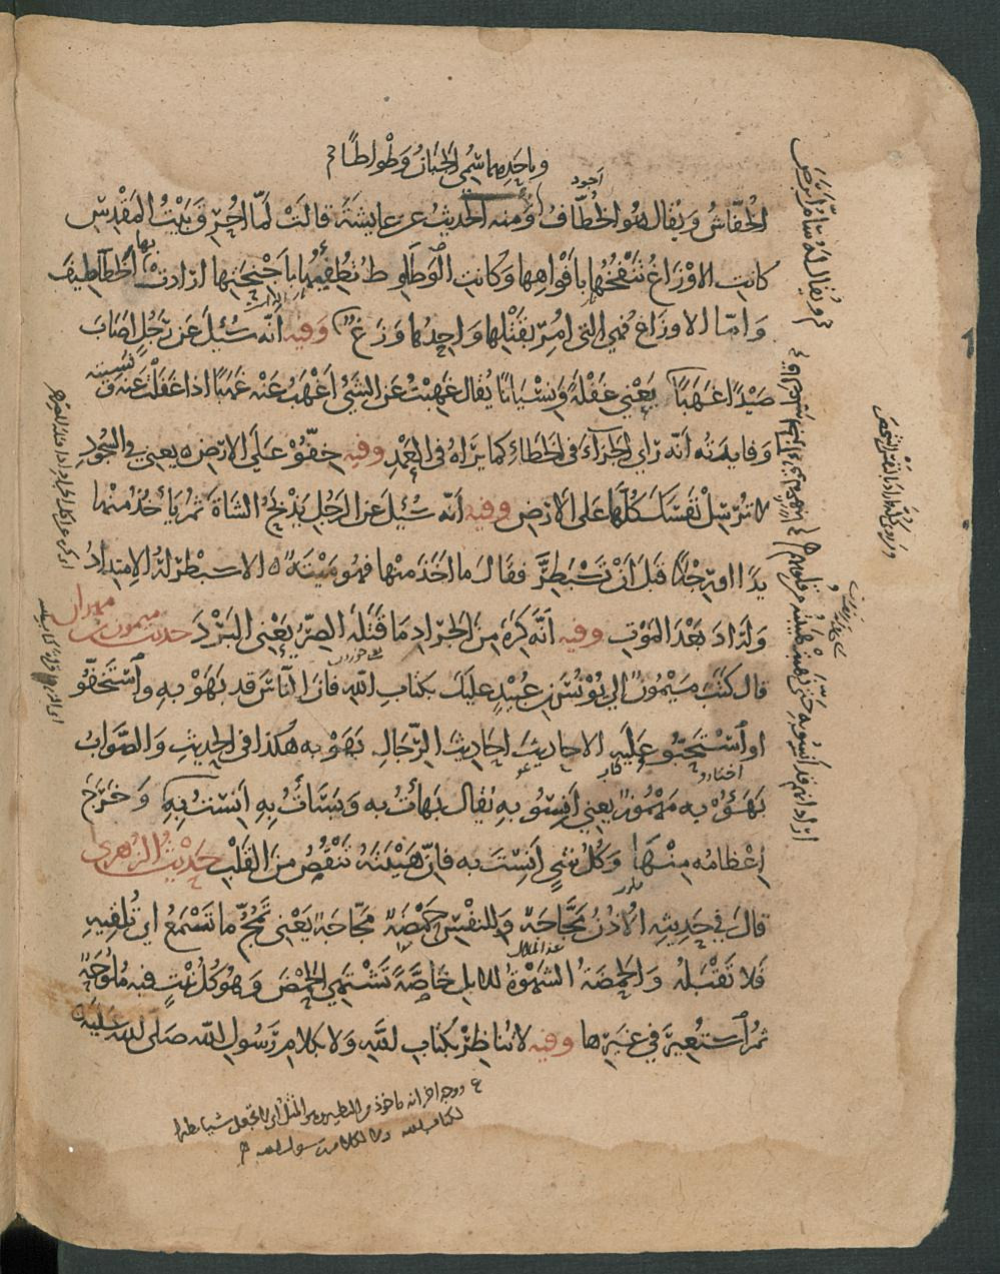 وبأحدهما سُمّي الجبان وَطْواطًا
اجود
الخفّاشُ وَيُقال هو الخُطّافُ وَمنه الحديثُ عن عايشَةَ قالَتْ لَمّا اُحْرِقَ بَيْتُ المَقْدِسِ
كانتِ الاَوْزَاغُ تَنْفُخُها بِاَفْوَاهِها وَكانتِ الوَطاوِطُ تُطْفِئُها بِاَجْنِحَتِها ارَادَتْ بها الخَطاطِيفَ
وَامّا الاوزاغ فهي التي اُمِرَ بقَتْلِها وَاحِدُها وَزَغٌ وَفيه أنّه سُئِلَ عَنْ رَجُلٍ اَصَابَ
صَيْدًا غَهَبًا يَعْني غَفْلَةً وَنِسْيَانًا يُقال غَهِبْتُ عَنِ الشَيْ اَغْهَبُ عَنْه غَهَبًا اذا غَفَلْتَ عَنْه وَنَسِيتَه
وَفايدَتُه أنّه رَاَى الجزآءَ في الخَطاءِ كما يَرَاهُ في العَمْدِ وفيه خِفّوا عَلَى الارْضِ يعني في السُّجُودِ
لا تُرْسِلْ نَفْسَكَ كُلَّها على الاَرْضِ وفيه أنّه سُئِلَ عَنِ الرَجُلِ يَذْبَحُ الشاةَ ثُمَّ يَأخُذُ مِنْها
يَدًا اوْ رِجْلًا قَبْلَ اَنْ تَسْبَطِرَّ فقَالَ ما اَخَذَ مِنْها فهُوَ مَيْتَةٌ الاسْبِطْرَارُ الاِمْتِدَادُ
وَارَادَ بَعْدَ المَوْتِ وفيه اَنَّه كَرِهَ مِنَ الجَرَادِ مَا قَتَلَه الصِرُّ يَعْني البَرْدَ حديث ميمون بن مهران
قال كَتَبَ مَيْمُونٌ الى يُونُسَ بْنِ عُبَيْدٍ عليكَ بكتابِ اللهِ فانّ النّاسَ قد بَهَوْا بِهِ واسْتَخَفّوا
او اسْتَحَبّوا عَلَيْه الاحاديثَ احاديثَ الرّجَالِ بَهَوْا به هكذا في الحديثِ وَالصَّوابُ
بَهَؤُا به مَهْمُوزٌ يعني اَنِسُوا به يُقال بَهَأتُ به وَبَسَأتُ بِه اَنِسْتُ بِهِ وَخَرَجَ
اِعْظامُه مِنْها وَكُلُّ شيءٍ اَنِسْتَ به فانّ هَيْبَتَهُ تَنْقُصُ مِنَ القَلْبِ حَديثُ الزُّهريّ
قالَ في حَدِيثِه الاُذُنُ مَجّاجَةٌ وَلِلنفْسِ حَمْضَةٌ مَجّاجَةٌ يَعْني تَمُجُّ ما تَسْمَعُ اي تُلْقِيهِ
فَلا تَقْبَلُه وَالحَمْضَةُ الشَهْوَةُ للابلِ خاصَّةً تَشْتَهي الحَمْضَ وَهُوَ كُلُّ نَبْتٍ فيه مُلُوحَةٌ
ثُمّ اسْتُعِيرَ في غَيْرِها وفيه لا تُناظِرْ بِكتابِ اللهِ وَلا بِكلامِ رَسُولِ اللهِ صَلى الله عَلَيْه
ووجه اخر انه ماخوذ من النظير وهو المثل اي لا تجعل شيا نظيرا
لكتاب الله ولا لكلام رسول الله
وَيُقالُ لَهُ سَامُّ اَبْرَصَ
اراد انهم قد اَنِسُوا به حَتّى ذهبَتْ هَيْبَتُه من قلوبهم